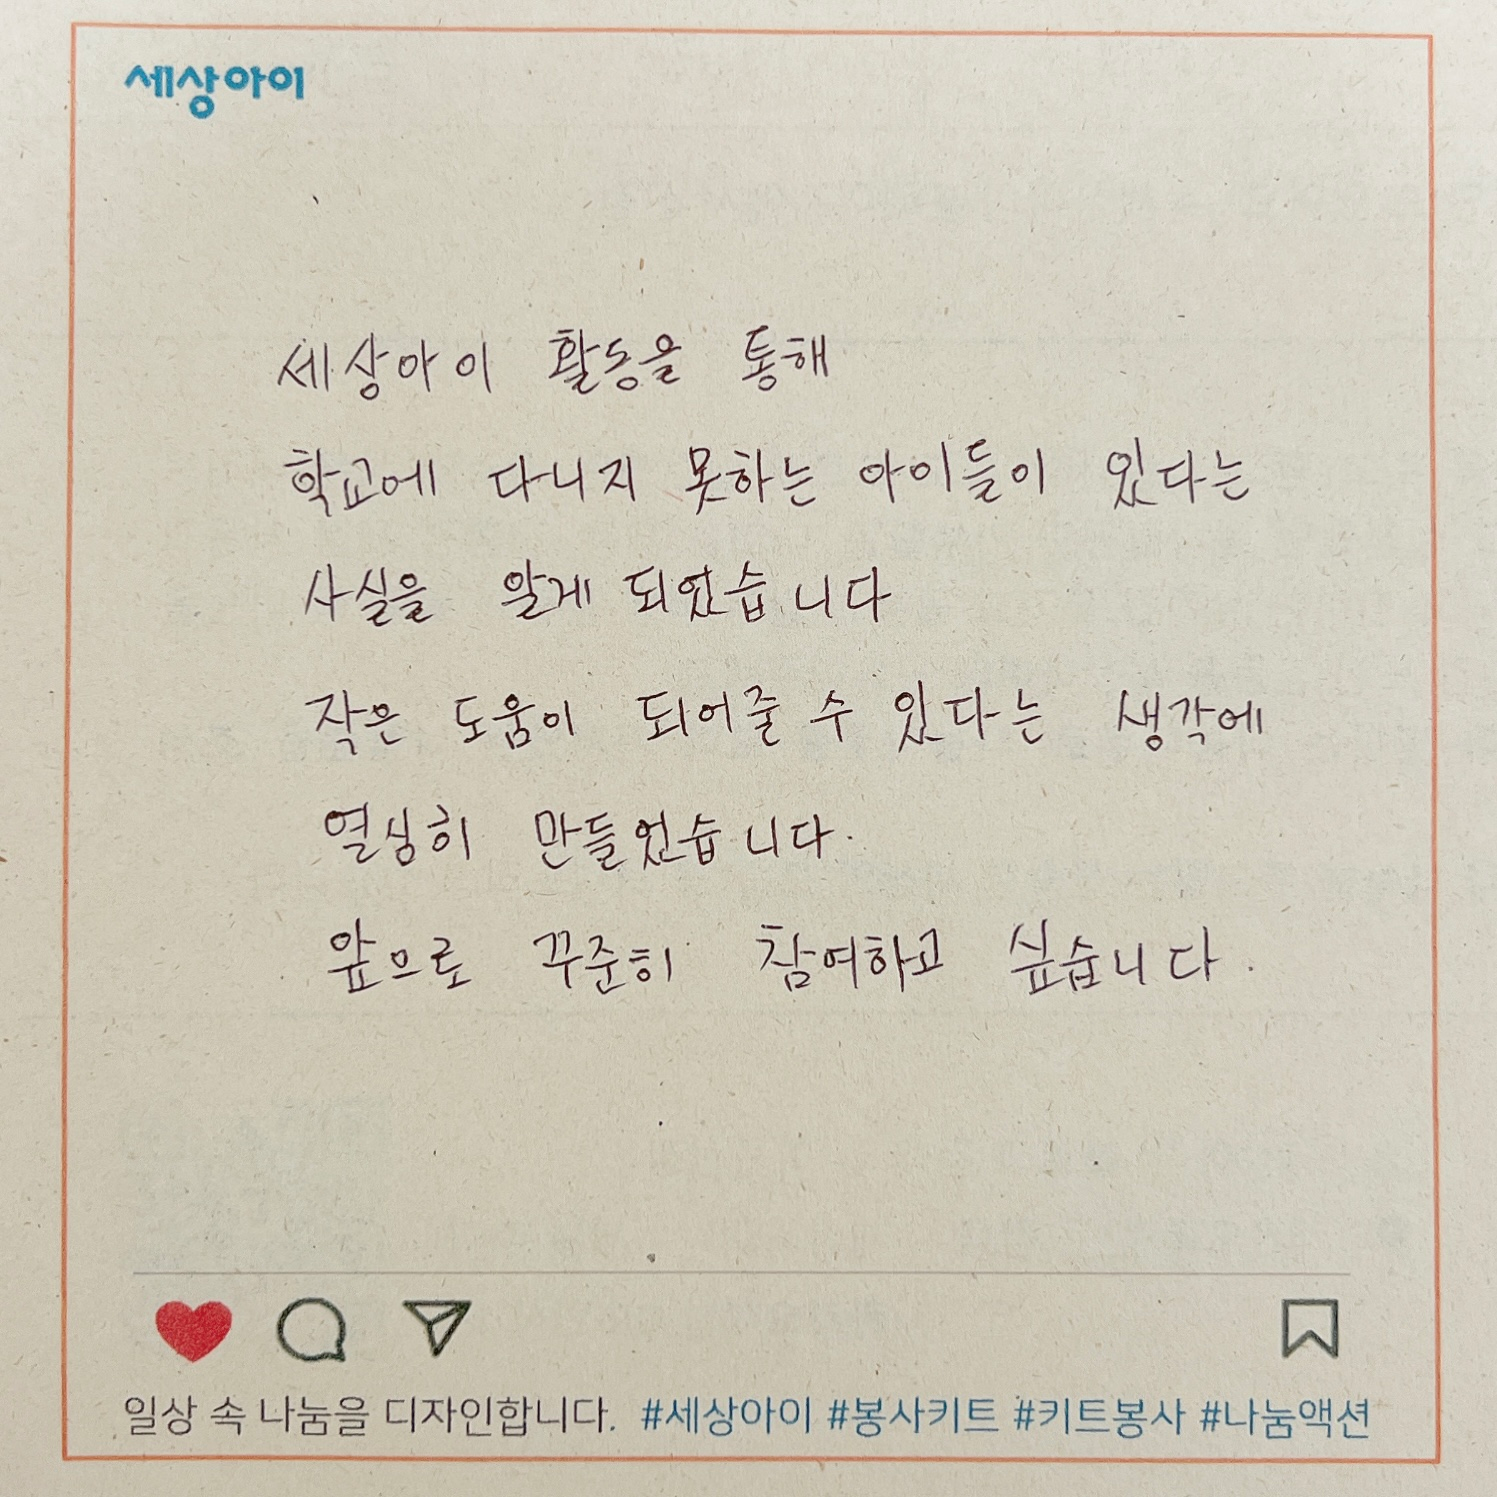 세상아이
세상아이 활동을 통해
학교에 다니지 못하는 아이들이 있다는
사실을 알게 되었습니다
작은 도움이 되어줄 수 있다는 생각에
열심히 만들었습니다.
앞으로 꾸준히 참여하고 싶습니다.
일상 속 나눔을 디자인합니다. #세상아이 #봉사키트 #키트봉사 #나눔액션